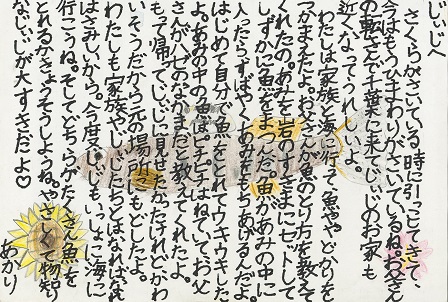 じぃじへ
さくらがさいている時に引っこしてきて、
今はもうひまわりがさいているね。お父さん
の転きんで千葉に来てじぃじのお家も
近くなってうれしいよ。
わたしは家族と海に行って魚やヤドカリを
つかまえたよ。お父さんが魚のとり方を教えて
くれたの。あみを岩のすきまにセットして
しずかに魚をまつんだ。魚があみの中に
入ったらすばやくあみをもちあげるんだよ。
はじめて自分で魚をとれてウキウキした
よ。あみの中の魚はピチピチはねていてお父
さんがハゼのなかまだと教えてくれたよ。
もって帰ってじぃじに見せたかったけれどかわ
いそうだから元の場所にもどしたよ。
わたしも家族やじぃじたちとはなればなれ
はさみしいから。今度じぃじもいっしょに海に
行こうね。そしてどちらがたくさん魚を
とれるかきょうそうしようね。やさしくて物知り
なじぃじが大すきだよ♡
あかり